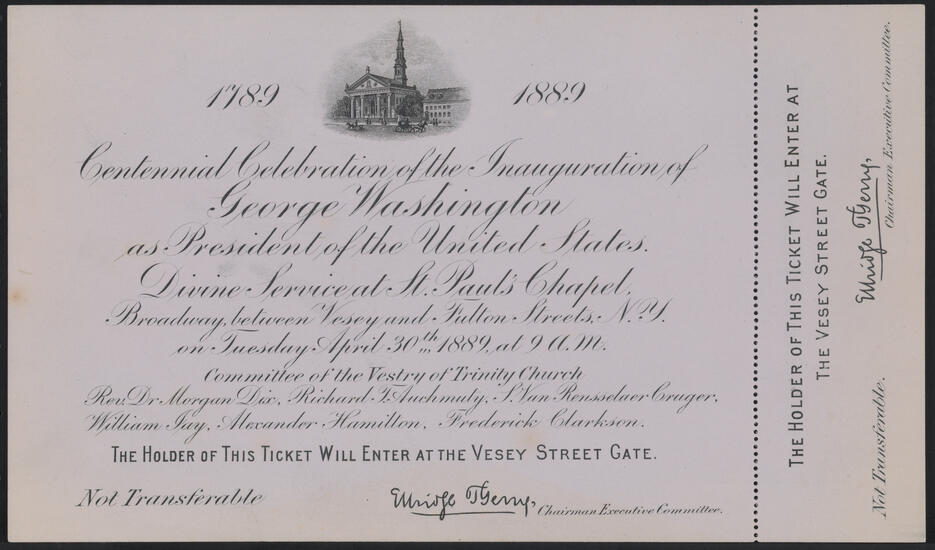 1789 1889
Centennial Celebration of the Inauguration of
George Washington
as President of the United States.
Divine Service at St. Paul's Chapel,
Broadway, between Vesey and Fulton Streets, N.Y.
on Tuesday April 30th, 1889, at 9 A.M.
Committee of the Vestry of Trinity Church
Rev. Dr Morgan Dix, Richard T. Auchmuty, S. Van Rensselaer Cruger,
William Jay, Alexander Hamilton, Frederick Clarkson.
THE HOLDER OF THIS TICKET WILL ENTER AT THE VESEY STREET GATE.
Not Transferable
Elbridge T. Gerry,
Chairman Executive Committee.
THE HOLDER OF THIS TICKET WILL ENTER AT
THE VESEY STREET GATE.
Elbridge T. Gerry,
Chairman Executive Committee.
Not Transferable.